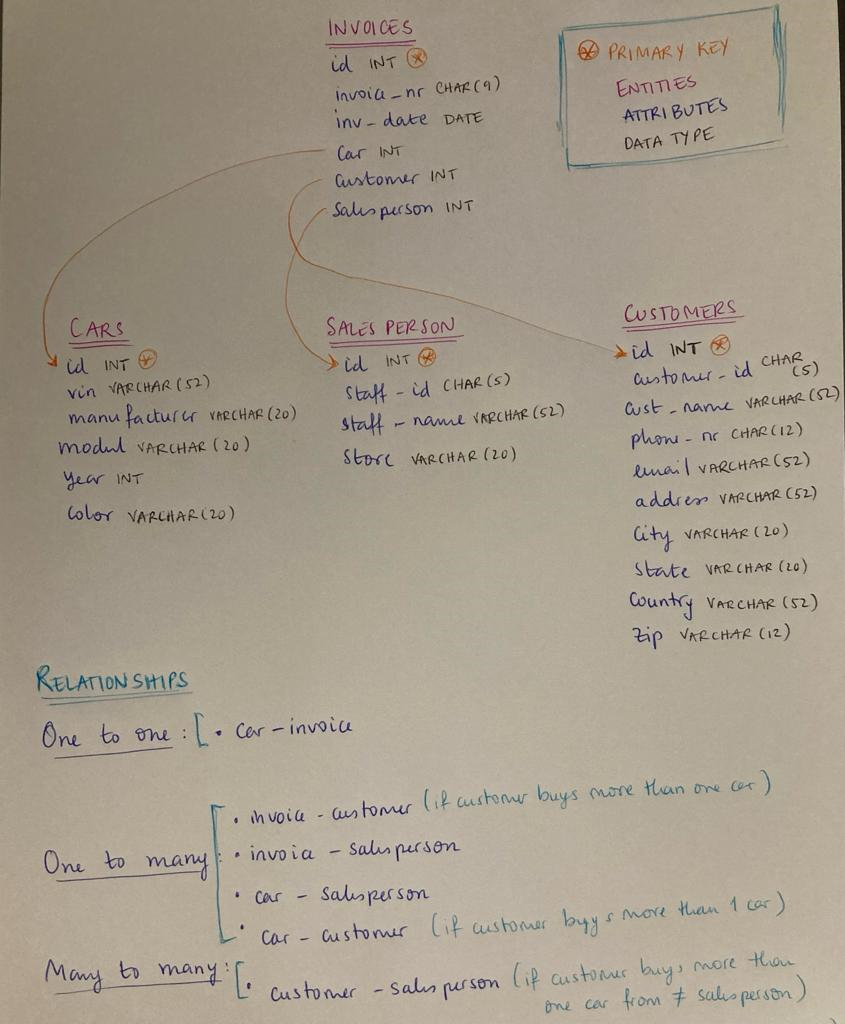 INVOICES
id INT
invoice_nr CHAR(9)
inv_date DATE
Car INT
Customer INT
Salesperson INT
PRIMARY KEY
ENTITIES
ATTRIBUTES
DATA TYPE
CARS
id INT
vin VARCHAR(52)
manufacturer VARCHAR(20)
model VARCHAR(20)
year INT
Color VARCHAR(20)
SALES PERSON
id INT
staff-id CHAR(5)
staff-name VARCHAR(52)
Store VARCHAR(20)
CUSTOMERS
id INT
customer-id CHAR(5)
cust_name VARCHAR(52)
phone-nr CHAR(12)
email VARCHAR(52)
address VARCHAR(52)
City VARCHAR(20)
State VARCHAR(20)
Country VARCHAR(52)
Zip VARCHAR(12)
RELATIONSHIPS
One to one: [ • car - invoice
One to many:
• invoice - customer (if customer buys more than one car)
• invoice - salesperson
• car - salesperson
• car - customer (if customer buys more than 1 car)
Many to many: [ • customer - salesperson (if customer buys more than
one car from ≠ salesperson)